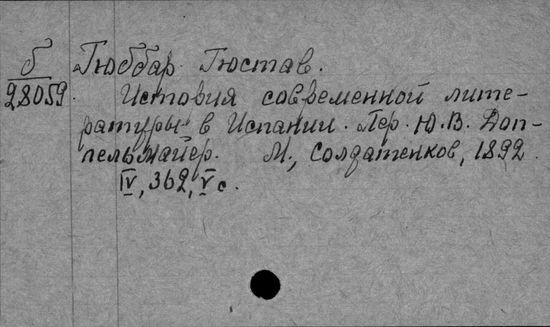 б Гюббар Гюстав.
28059. История современной лите-
ратуры в Испании. Пер. Ю.В. Доп-
пельмайер. М., Солдатенков, 1892.
IV, 362, V с.